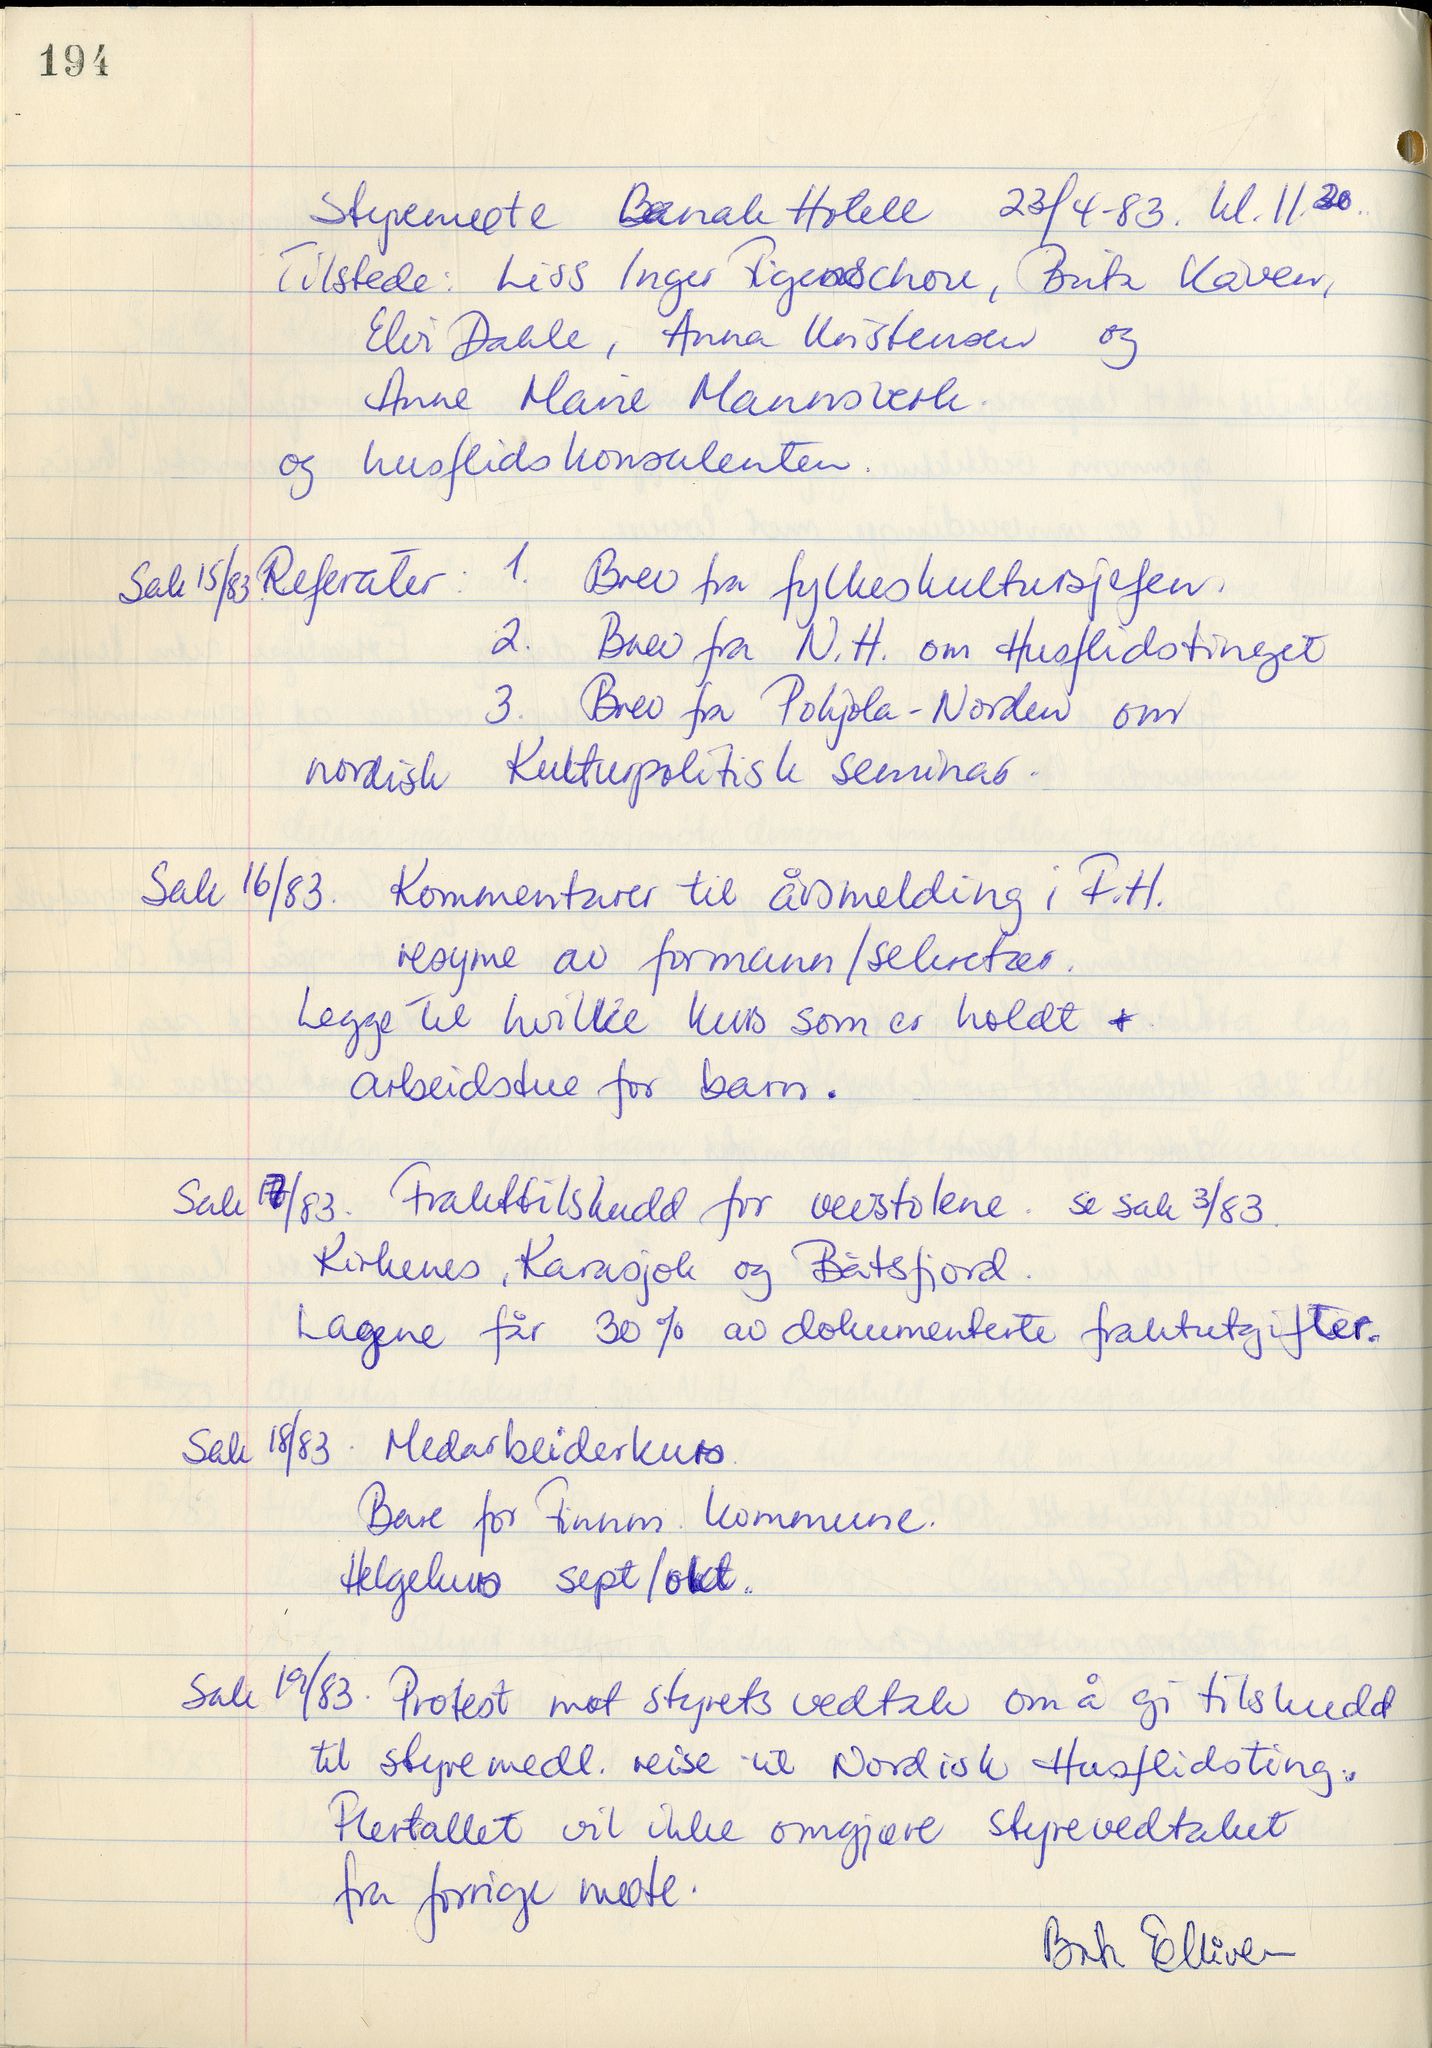 194
Styremøte Banak Hotell 23/4-83. kl. 11.30.
Tilstede: Liss Inger Figenschou, Brita Kåven,
Elvi Dahle, Anna Kristensen og
Anne Marie Mannsverk.
og husflidskonsulenten.
Sak 15/83 Referater: 1. Brev fra fylkeskultursjefen.
2. Brev fra N.H. om Husflidstinget
3. Brev fra Pohjola-Norden om
nordisk Kulturpolitisk seminar.
Sak 16/83. Kommentarer til årsmelding i F.H.
resyme av formann/sekretær.
Legge til hvilke kurs som er holdt +
arbeidstue for barn.
Sak 17/83. Frakttilskudd for vevstolene. se sak 3/83.
Kirkenes, Karasjok og Båtsfjord.
Lagene får 30% av dokumenterte fraktutgifter.
Sak 18/83. Medarbeiderkurs.
Bare for Finnm. kommune.
Helgekurs sept/okt.
Sak 19/83. Protest mot styrets vedtak om å gi tilskudd
til styremedl. reise til Nordisk Husflidsting.
Flertallet vil ikke omgjøre styrevedtaket
fra forrige møte.